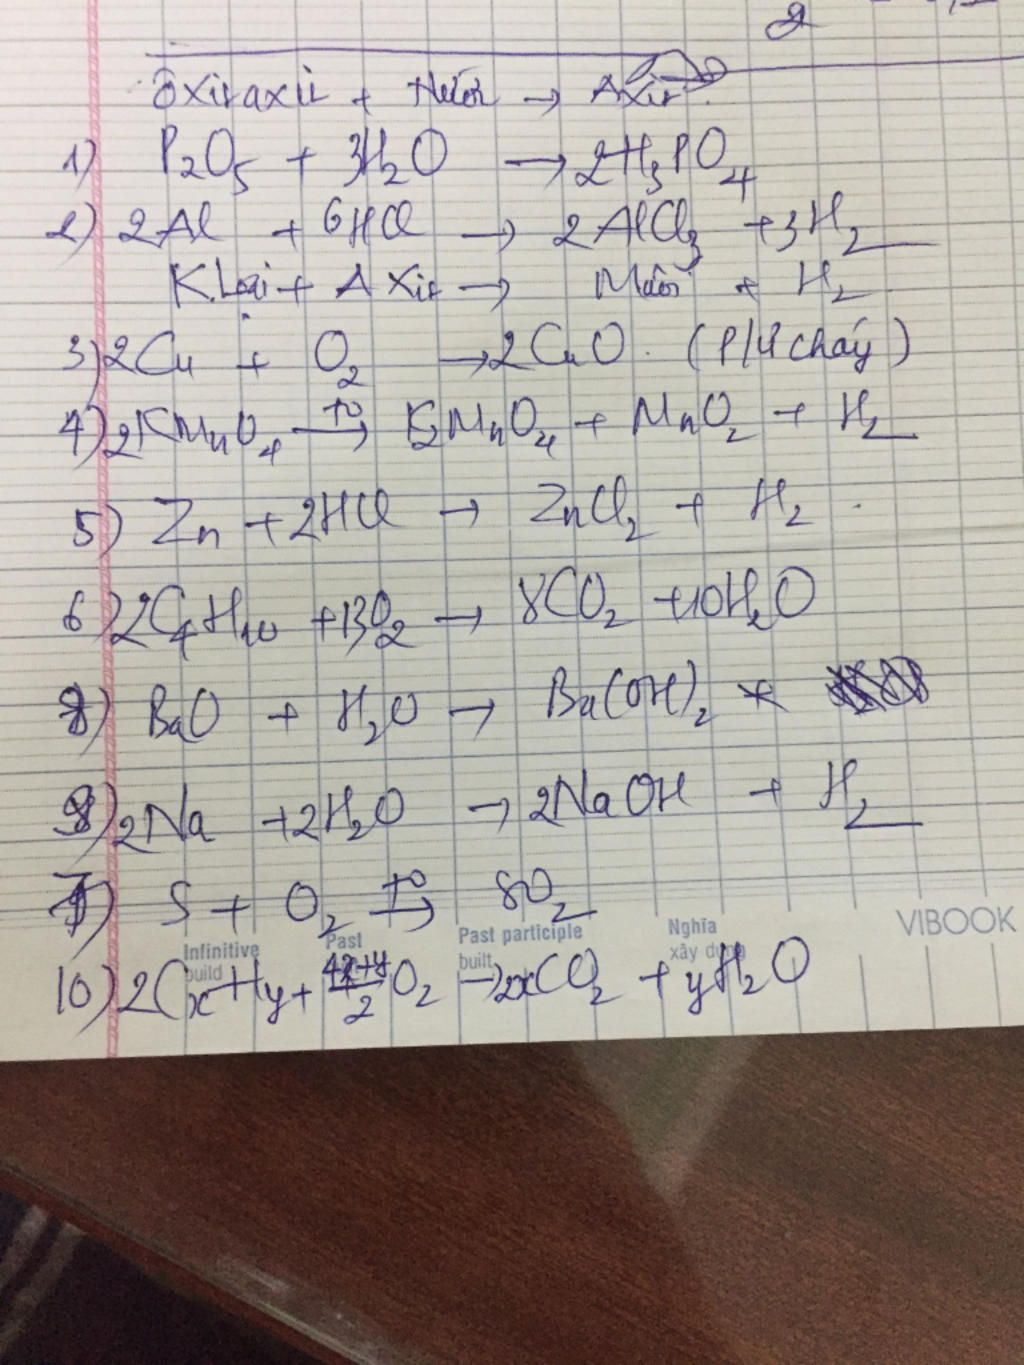 2
Ôxit axit + Nước → Axit.
1) P₂O₅ + 3H₂O → 2H₃PO₄
2) 2Al + 6HCl → 2AlCl₃ + 3H₂
K.Loại + AXit → Muối + H₂
3) 2Cu + O₂ → 2CuO. (P/Ư cháy)
4) 2KMnO₄ →(t⁰) K₂MnO₄ + MnO₂ + H₂
5) Zn + 2HCl → ZnCl₂ + H₂.
6) 2C₄H₁₀ + 13O₂ → 8CO₂ + 10H₂O
8) BaO + H₂O → Ba(OH)₂ +
9) 2Na + 2H₂O → 2NaOH + H₂
7) S + O₂ →(t⁰) SO₂
VIBOOK
Infinitive Past Past participle Nghĩa
build built xây dựng
10) 2CxHy + (4x+y)/2 O₂ → 2xCO₂ + yH₂O